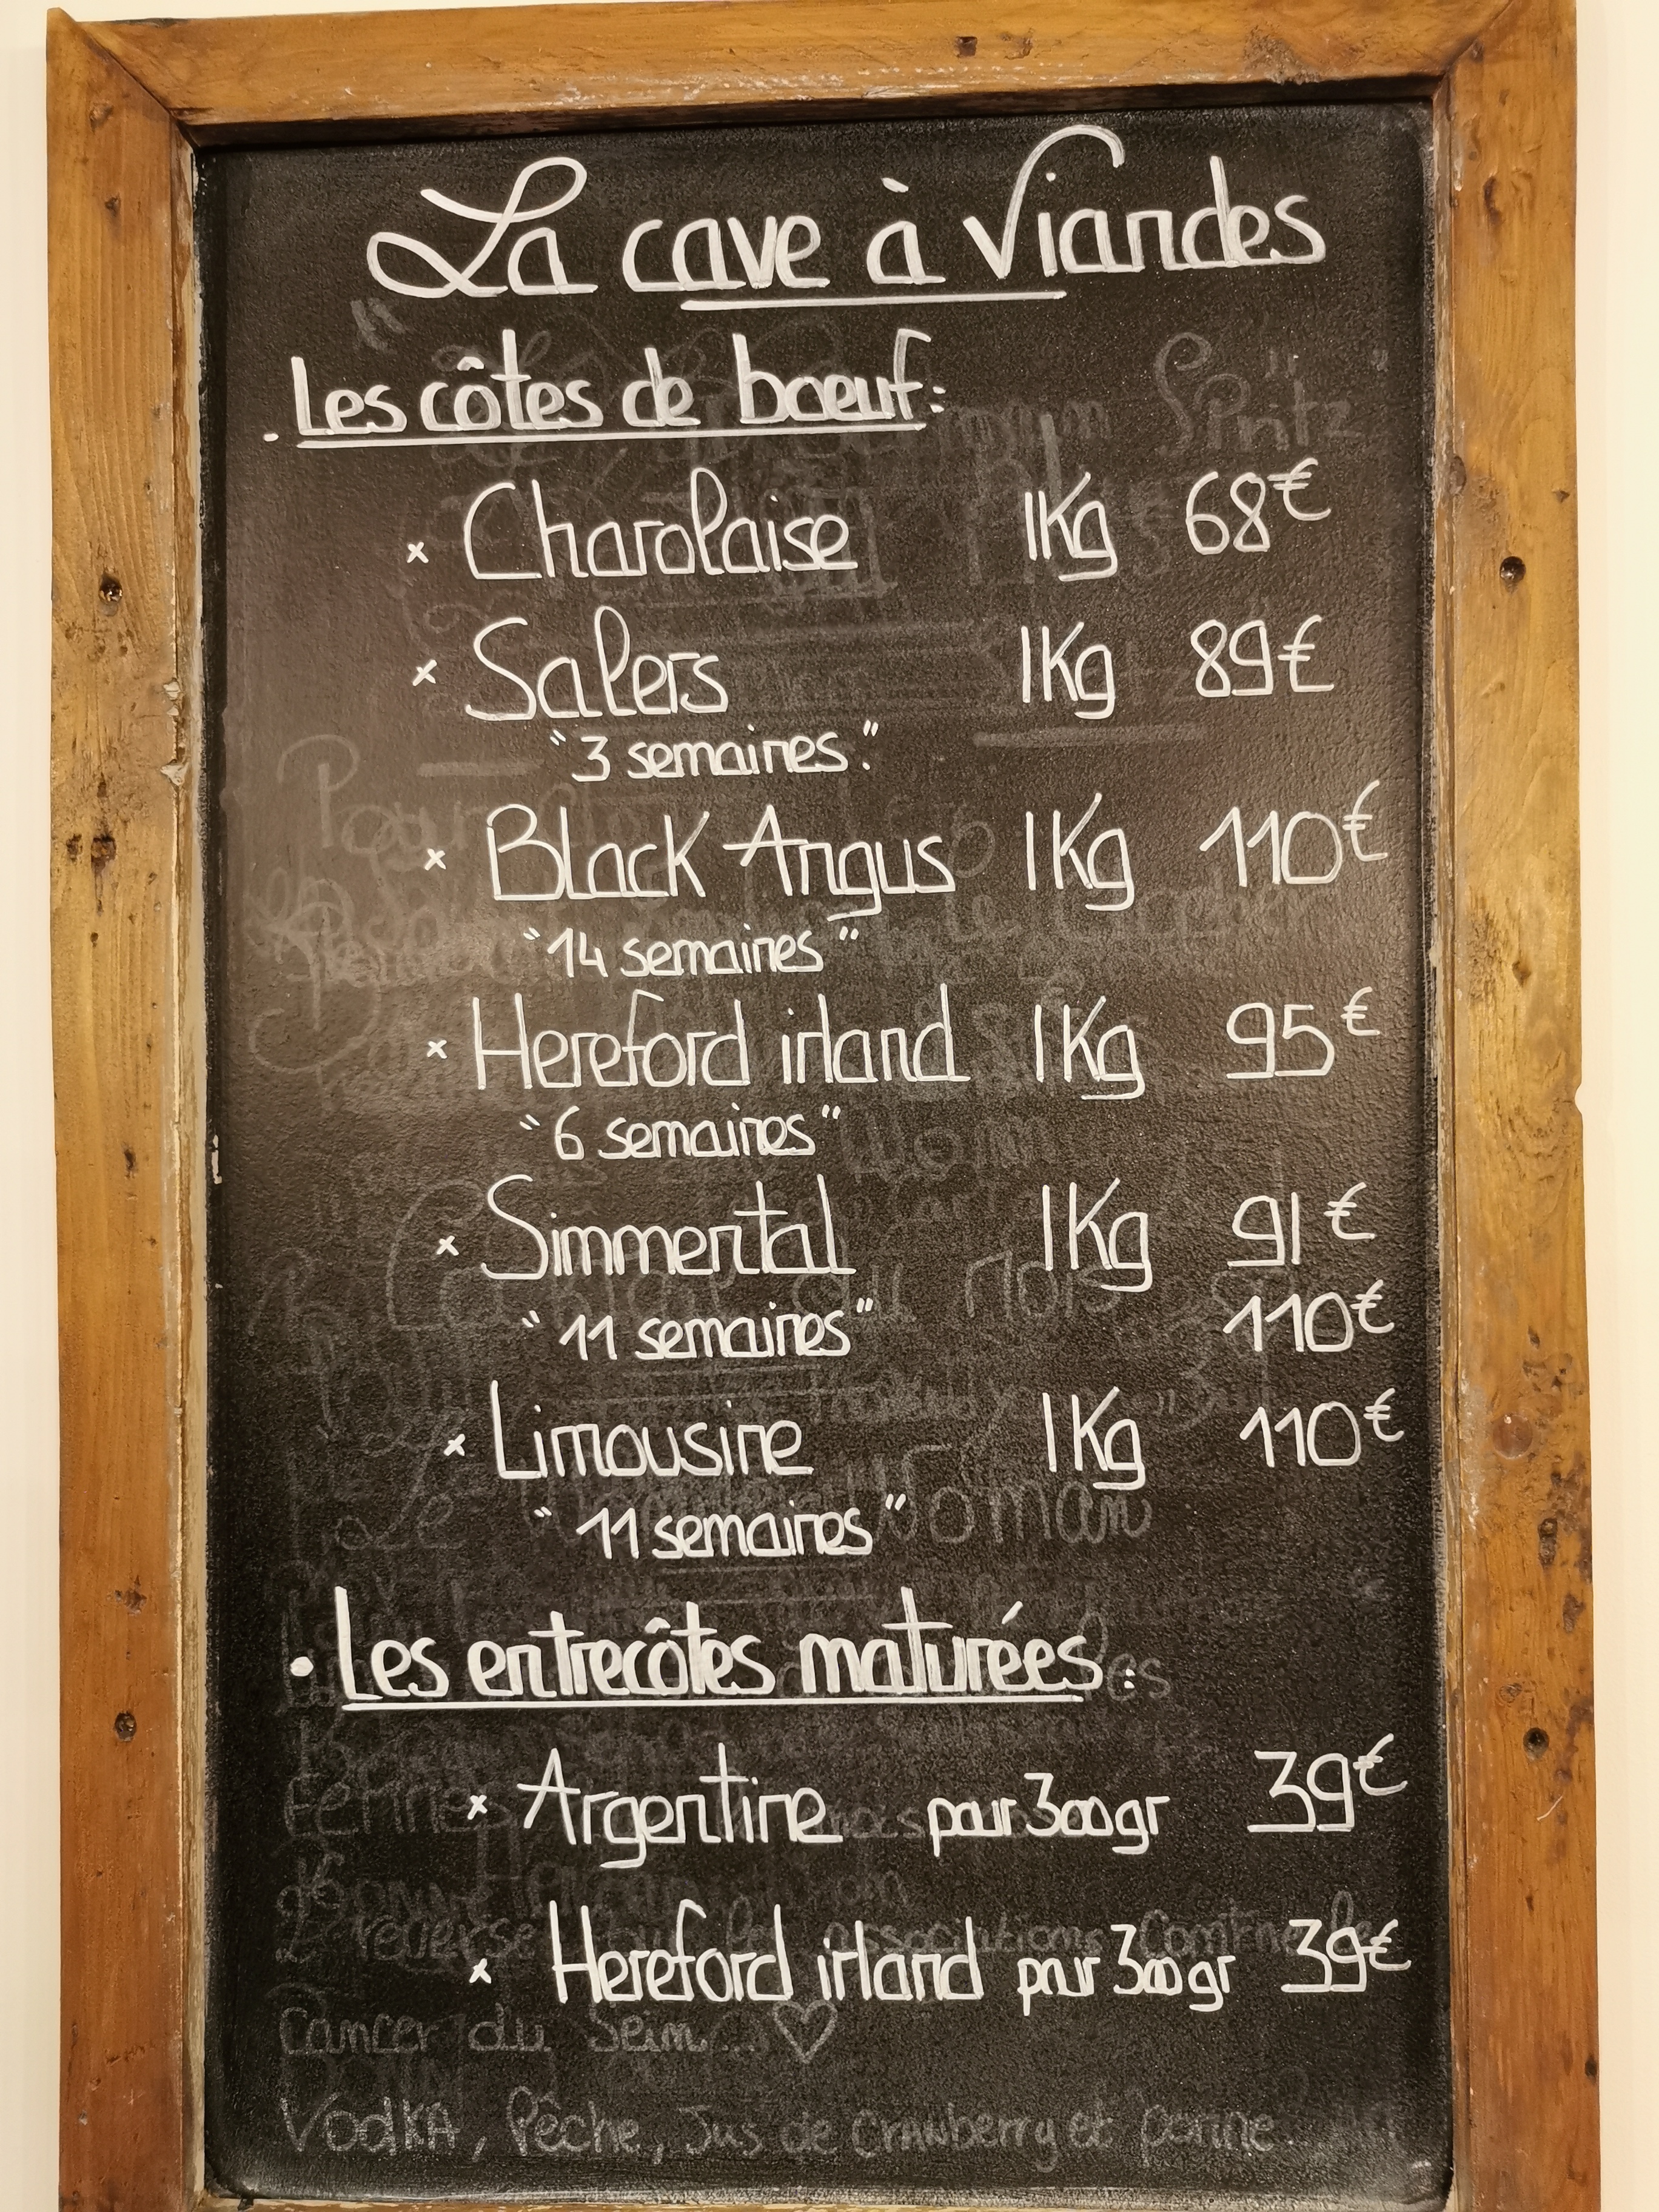 La cave à Viandes
. Les côtes de boeuf:
x Charolaise 1Kg 68€
x Salers 1Kg 89€
"3 semaines."
x Black Angus 1Kg 110€
"14 semaines"
x Hereford irland 1Kg 95€
"6 semaines"
x Simmental 1Kg 91€
"11 semaines" 110€
x Limousine 1Kg 110€
"11 semaines"
• Les entrecôtes maturées:
x Argentine par 300gr 39€
x Hereford irland par 300gr 39€
Cancer du Sein... ♡
Vodka, Pêche, Jus de Cranberry et